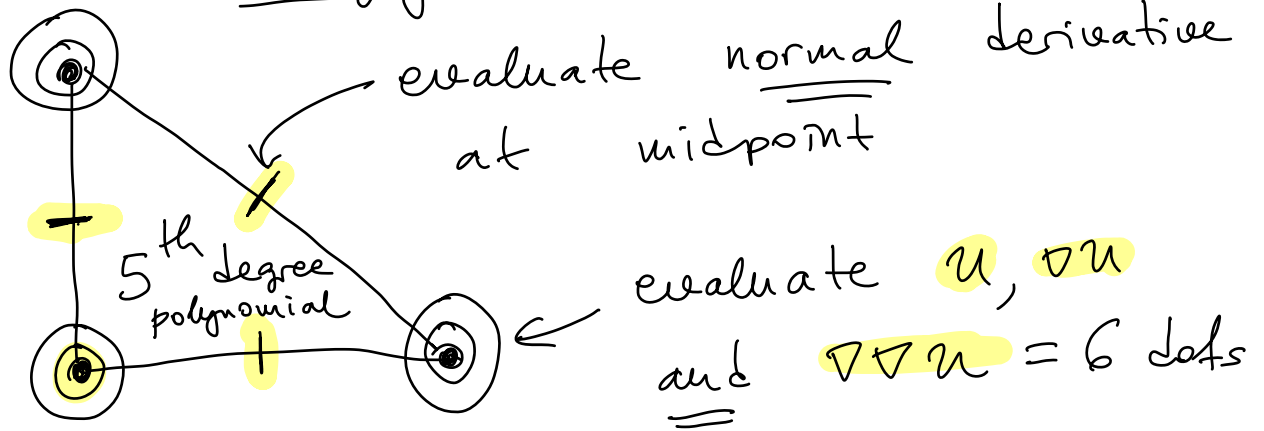 evaluate normal derivative
at midpoint
5th degree
polynomial
evaluate u, ∇u
and ∇∇u = 6 dofs